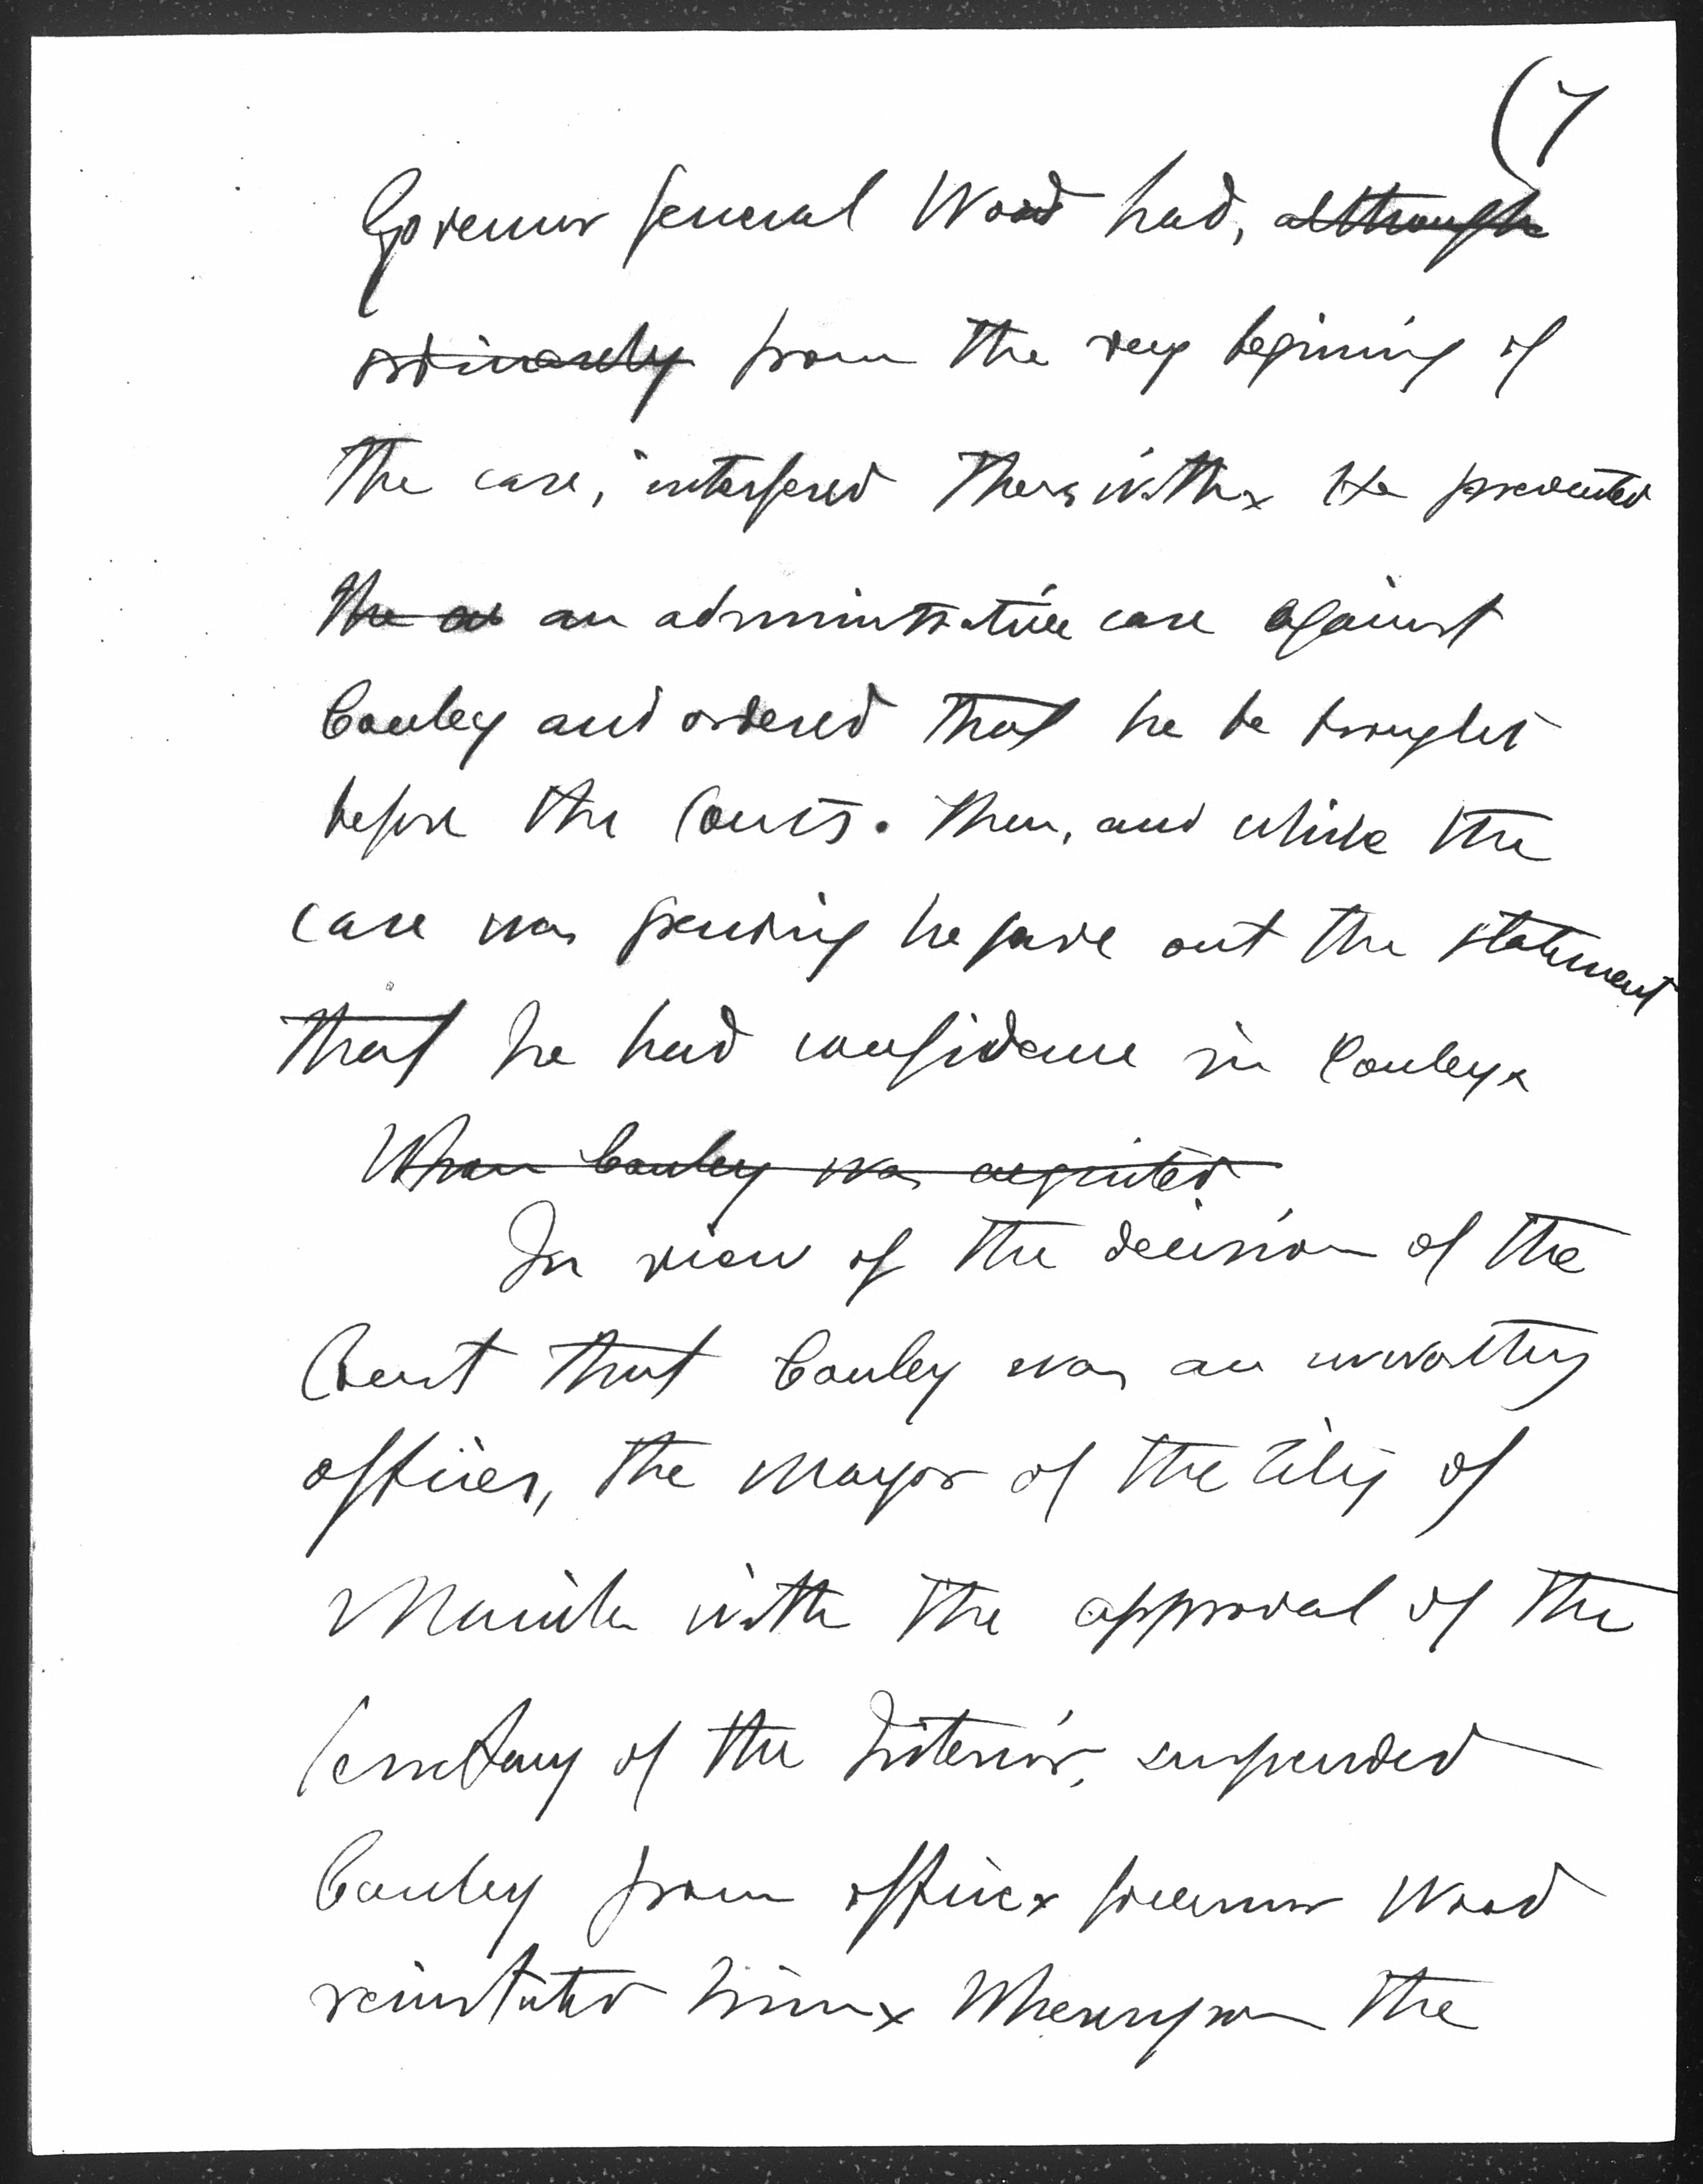 (7
Governor General Wood had, although
ordinarily from the very begining of
the case, interfered therewith x He prevented
the ad an administrative case against
Conley and ordered that he be brought
before the Courts. Then, and while the
case was pending he gave out the statement
that he had confidence in Conley x
When Conley was acquited
In view of the decision of the
Court that Conley was an unworthy
officer, the Mayor of the City of
Manila with the approval of the
Secretary of the Interior, suspended
Conley from office x Governor Wood
reinstated him x Whereupon the